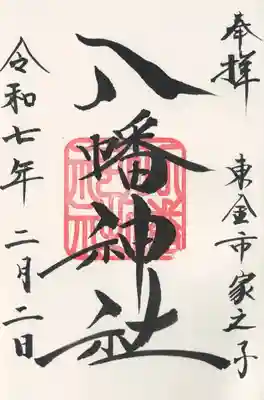 奉拝
東金市家之子
八幡神社
令和七年 二月二日